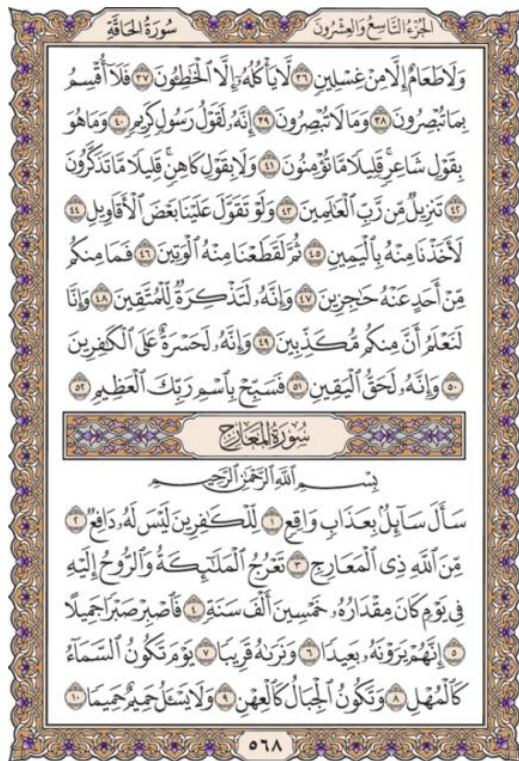 الجزء التاسع والعشرون
سورة الحاقة
وَلَا طَعَامٌ إِلَّا مِنْ غِسْلِينٍ ٣٦ لَّا يَأْكُلُهُۥٓ إِلَّا ٱلْخَٰطِـُٔونَ ٣٧ فَلَآ أُقْسِمُ
بِمَا تُبْصِرُونَ ٣٨ وَمَا لَا تُبْصِرُونَ ٣٩ إِنَّهُۥ لَقَوْلُ رَسُولٍ كَرِيمٍ ٤٠ وَمَا هُوَ
بِقَوْلِ شَاعِرٍ ۚ قَلِيلًا مَّا تُؤْمِنُونَ ٤١ وَلَا بِقَوْلِ كَاهِنٍ ۚ قَلِيلًا مَّا تَذَكَّرُونَ
٤٢ تَنزِيلٌ مِّن رَّبِّ ٱلْعَٰلَمِينَ ٤٣ وَلَوْ تَقَوَّلَ عَلَيْنَا بَعْضَ ٱلْأَقَاوِيلِ ٤٤
لَأَخَذْنَا مِنْهُ بِٱلْيَمِينِ ٤٥ ثُمَّ لَقَطَعْنَا مِنْهُ ٱلْوَتِينَ ٤٦ فَمَا مِنكُم
مِّنْ أَحَدٍ عَنْهُ حَٰجِزِينَ ٤٧ وَإِنَّهُۥ لَتَذْكِرَةٌ لِّلْمُتَّقِينَ ٤٨ وَإِنَّا
لَنَعْلَمُ أَنَّ مِنكُم مُّكَذِّبِينَ ٤٩ وَإِنَّهُۥ لَحَسْرَةٌ عَلَى ٱلْكَٰفِرِينَ
٥٠ وَإِنَّهُۥ لَحَقُّ ٱلْيَقِينِ ٥١ فَسَبِّحْ بِٱسْمِ رَبِّكَ ٱلْعَظِيمِ ٥٢
سورة المعارج
بِسْمِ ٱللَّهِ ٱلرَّحْمَٰنِ ٱلرَّحِيمِ
سَأَلَ سَآئِلٌۢ بِعَذَابٍ وَاقِعٍ ١ لِّلْكَٰفِرِينَ لَيْسَ لَهُۥ دَافِعٌ ٢
مِّنَ ٱللَّهِ ذِى ٱلْمَعَارِجِ ٣ تَعْرُجُ ٱلْمَلَٰٓئِكَةُ وَٱلرُّوحُ إِلَيْهِ
فِى يَوْمٍ كَانَ مِقْدَارُهُۥ خَمْسِينَ أَلْفَ سَنَةٍ ٤ فَٱصْبِرْ صَبْرًا جَمِيلًا
٥ إِنَّهُمْ يَرَوْنَهُۥ بَعِيدًا ٦ وَنَرَىٰهُ قَرِيبًا ٧ يَوْمَ تَكُونُ ٱلسَّمَآءُ
كَٱلْمُهْلِ ٨ وَتَكُونُ ٱلْجِبَالُ كَٱلْعِهْنِ ٩ وَلَا يَسْـَٔلُ حَمِيمٌ حَمِيمًا ١٠
٥٦٨